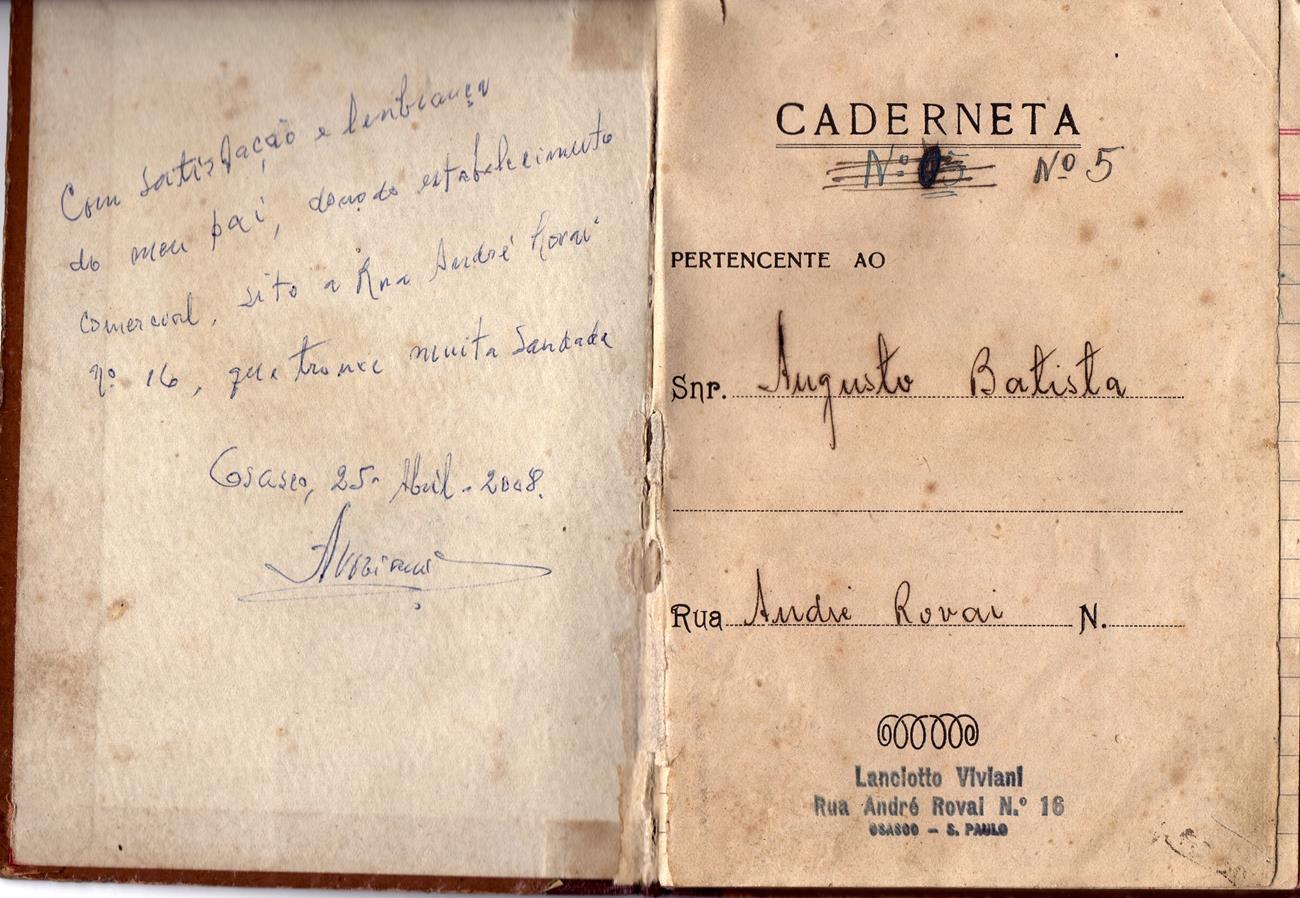 Com satisfação e lembrança
do meu pai, dono do estabelecimento
comercial, sito a Rua André Rovai
nº 16, que trouxe muita Saudade
Osasco, 25- Abril - 2008.
CADERNETA
Nº 5
PERTENCENTE AO
Snr. Augusto Batista
Rua André Rovai N.
Lanciotto Viviani
Rua André Rovai N.º 16
OSASCO — S. PAULO